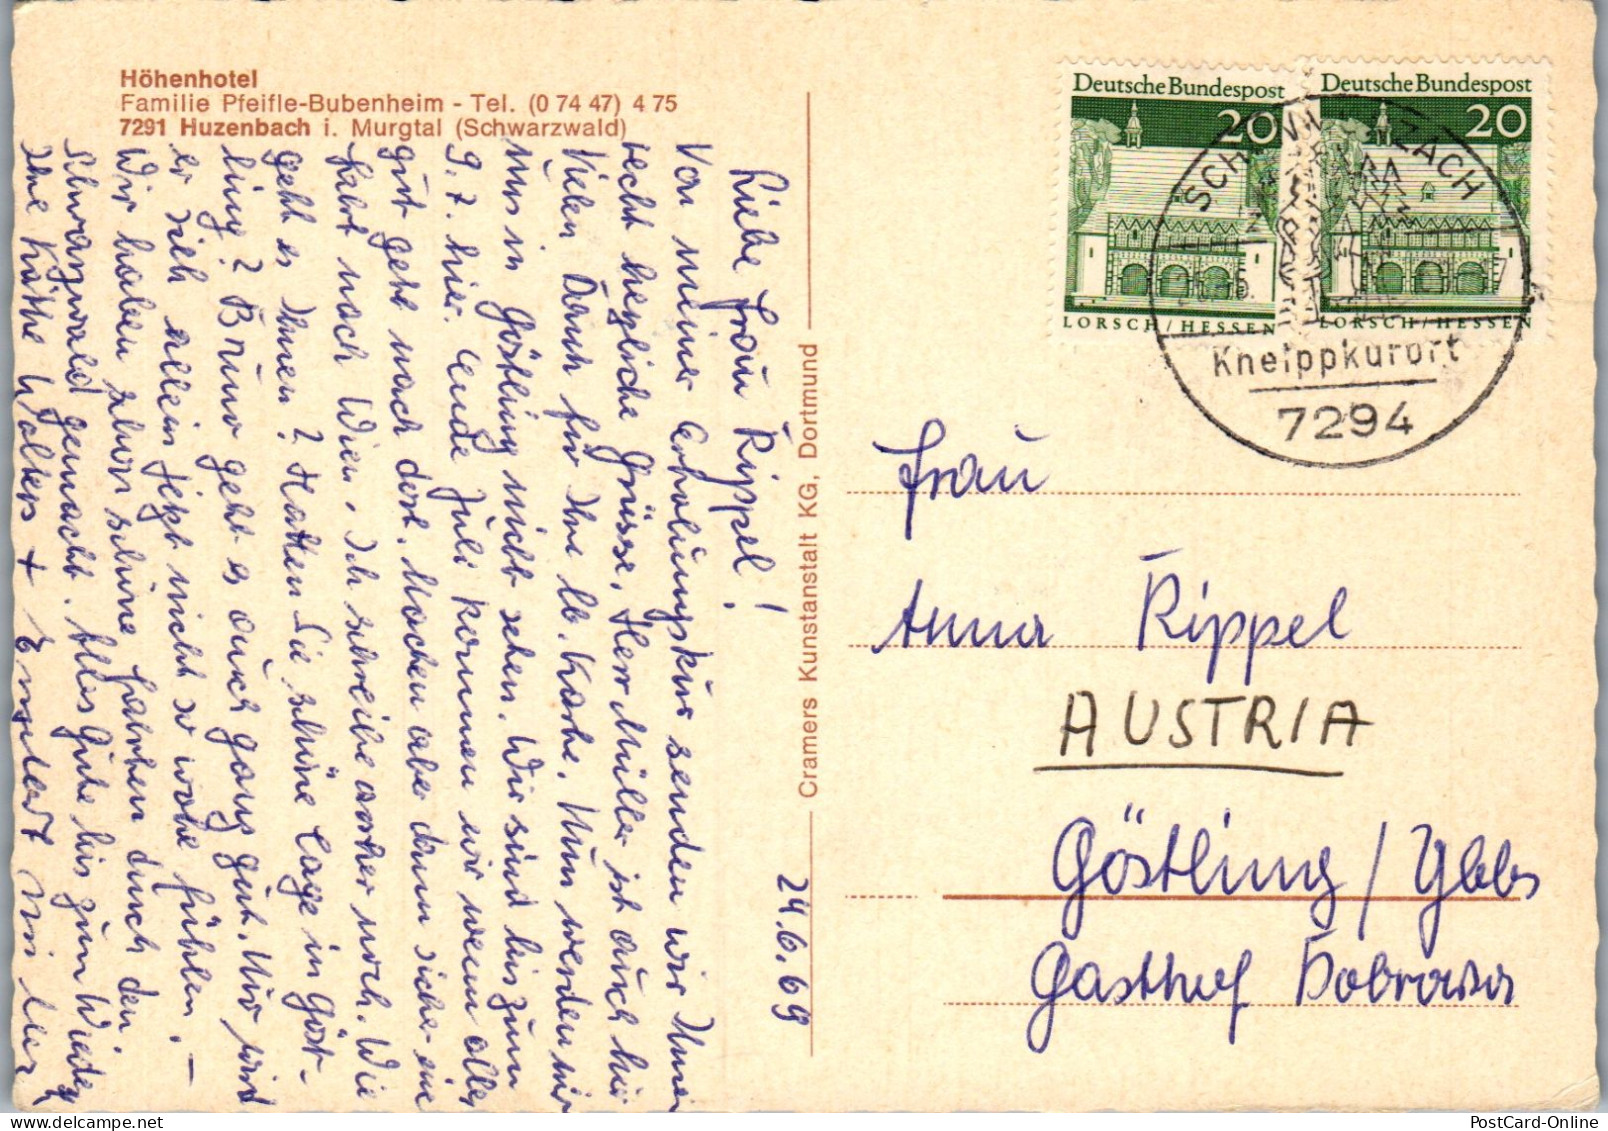 Höhenhotel
Familie Pfeifle-Bubenheim - Tel. (0 74 47) 4 75
7291 Huzenbach i. Murgtal (Schwarzwald)
24.6.69
Liebe Frau Rippel!
Von meiner Erholungskur senden wir Ihnen
recht herzliche Grüsse. Herr Müller ist auch hier
Vielen Dank für Ihre lb. Karte. Nun werden wir
uns in Göstling nicht sehen. Wir sind bis zum
9.7. hier. Ende Juli kommen wir wenn alles
gut geht nach dort. Machen aber dann sicher eine
Fahrt nach Wien. Ich schreibe vorher noch. Wie
geht es Ihnen? Hatten Sie schöne Tage in Göst-
ling? Bruno geht es auch ganz gut. Nur wird
er sich allein jetzt nicht so wohl fühlen. –
Wir haben schon schöne Fahrten durch den
Schwarzwald gemacht. Alles Gute bis zum Wieder
Ihre Käthe Wolters +
Cramers Kunstanstalt KG, Dortmund
Deutsche Bundespost
20
LORSCH/HESSEN
Deutsche Bundespost
20
LORSCH/HESSEN
Kneippkurort
7294
Frau
Anna Rippel
AUSTRIA
Göstling/Ybbs
Gasthof
PostCard-Online